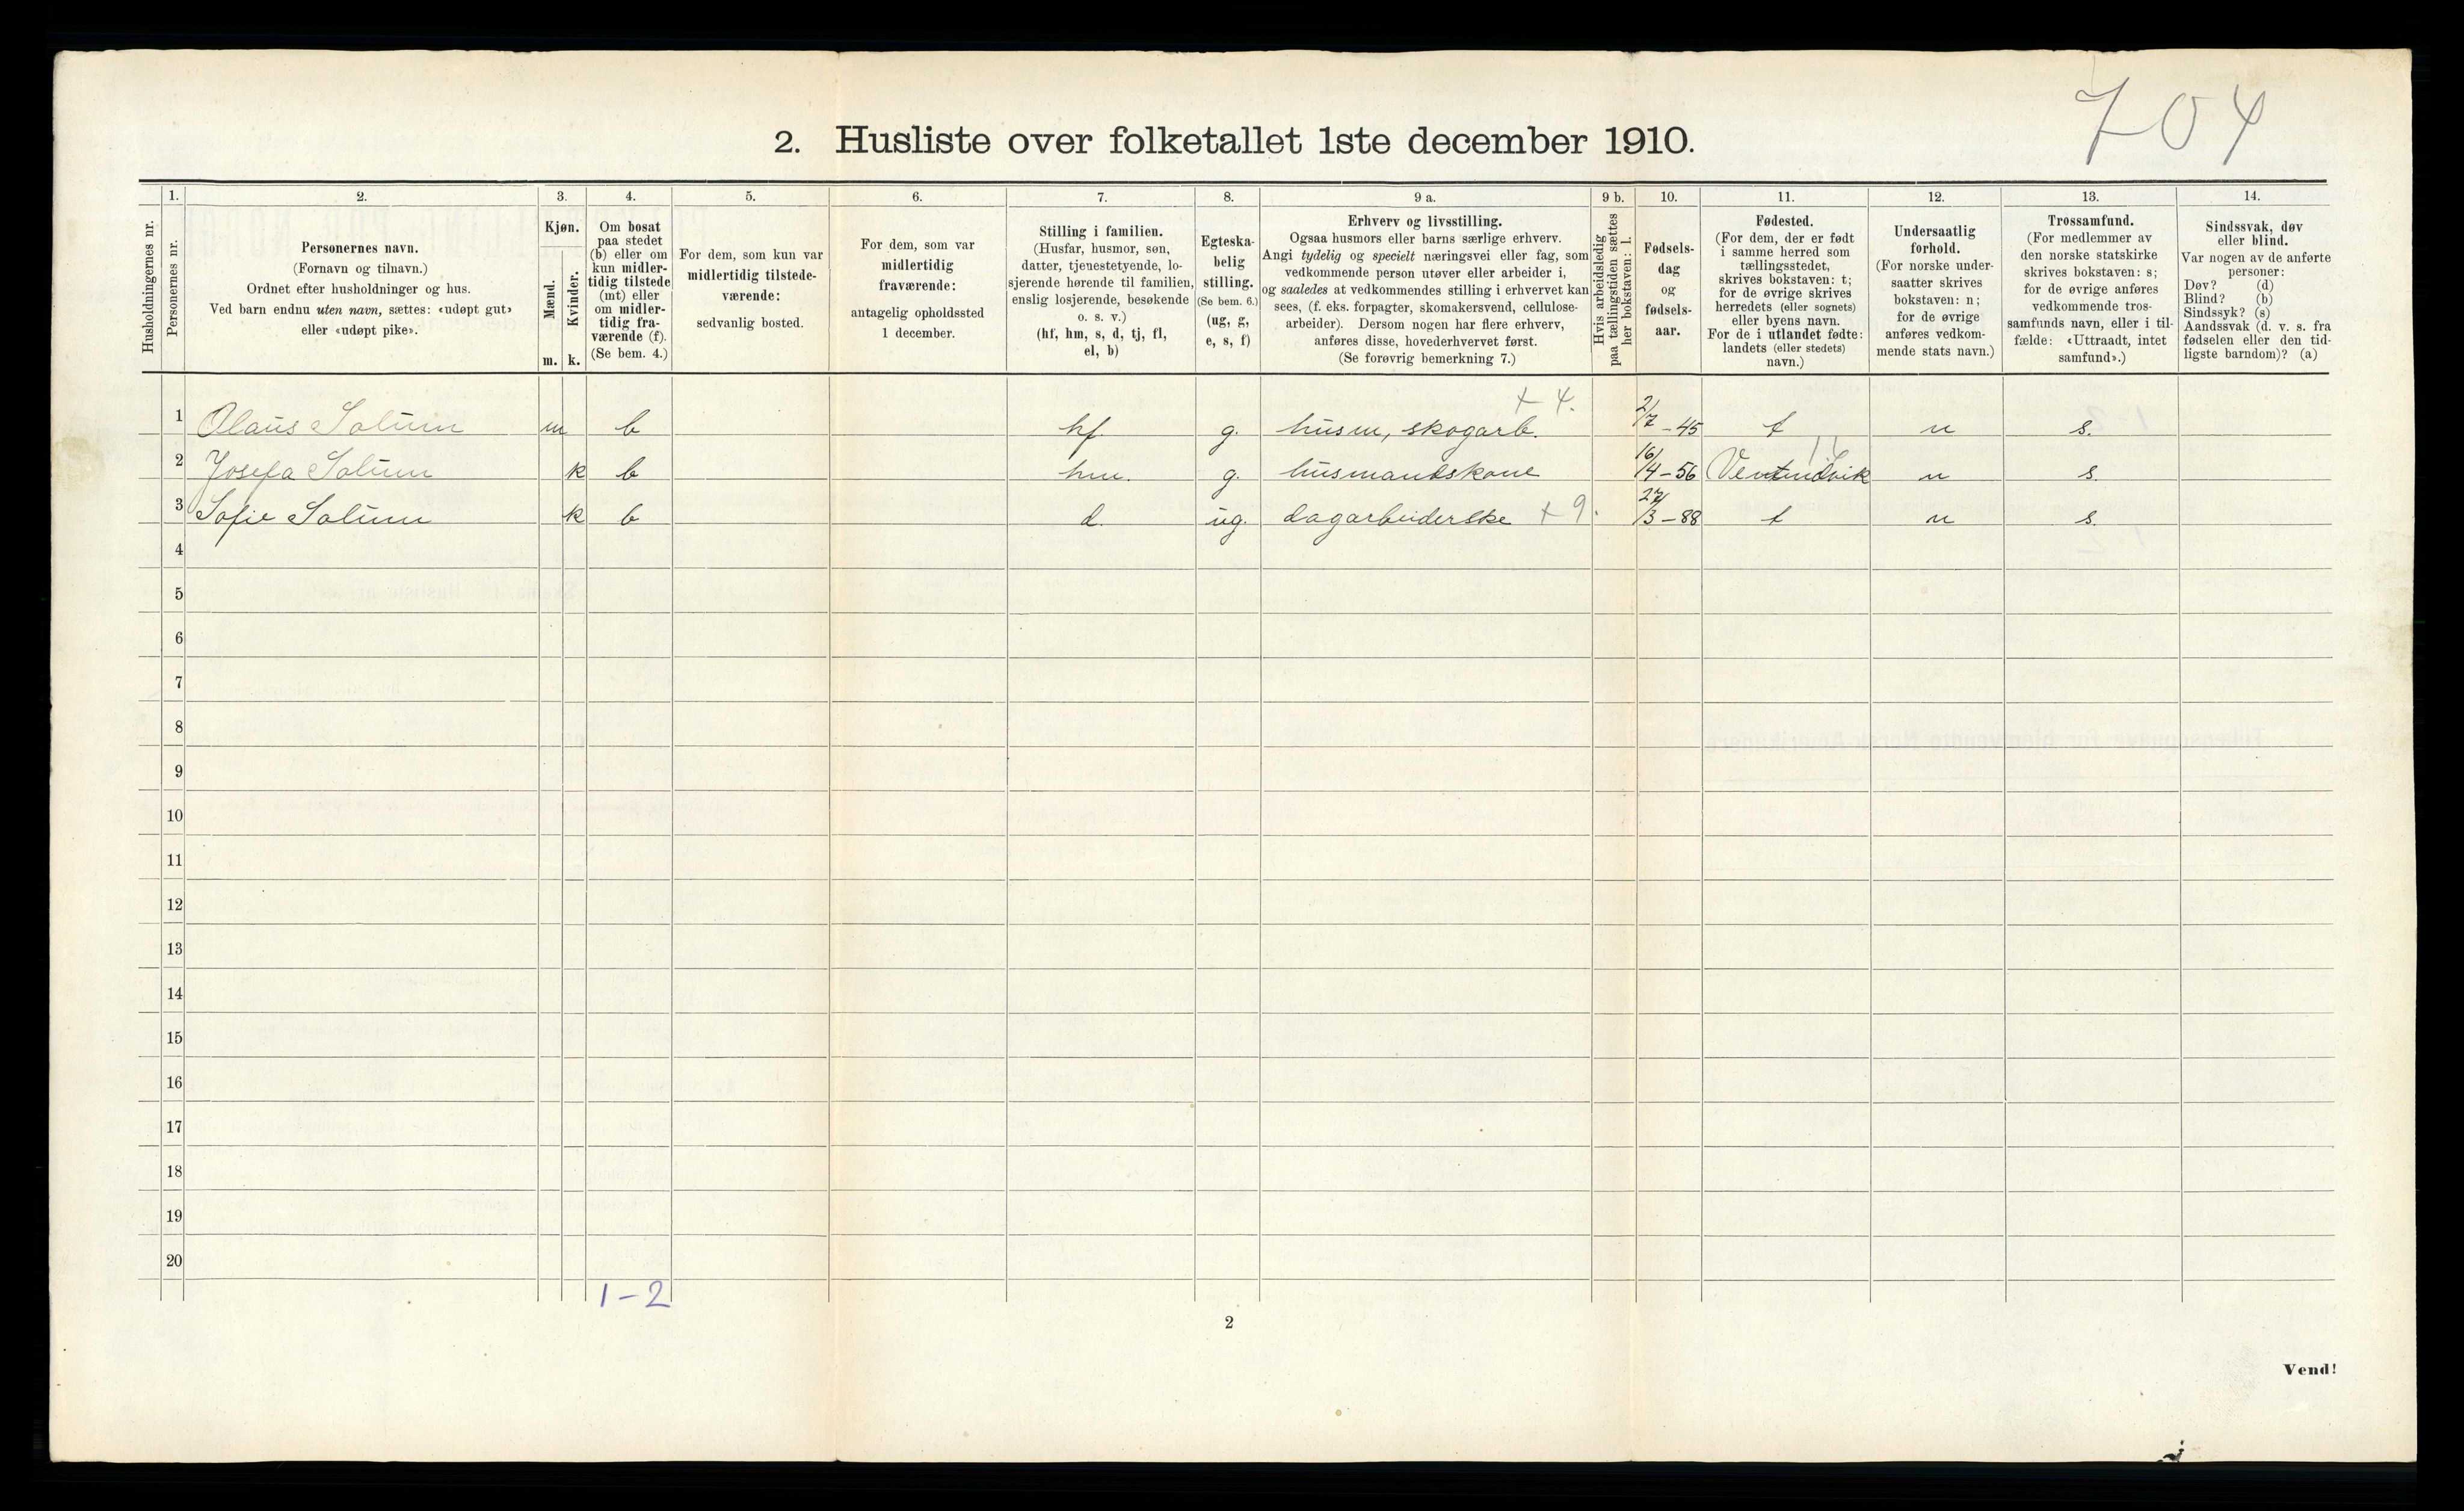 704
2. Husliste over folketallet 1ste december 1910.
Husholdningernes nr.
1.
Personernes nr.
2.
Personernes navn.
(Fornavn og tilnavn.)
Ordnet efter husholdninger og hus.
Ved barn endnu uten navn, sættes: «udøpt gut»
eller «udøpt pike».
3.
Kjøn.
Mænd.
Kvinder.
m. k.
4.
Om bosat
paa stedet
(b) eller om
kun midler-
tidig tilstede
(mt) eller
om midler-
tidig fra-
værende (f).
(Se bem. 4.)
5.
For dem, som kun var
midlertidig tilstede-
værende:
sedvanlig bosted.
6.
For dem, som var
midlertidig
fraværende:
antagelig opholdssted
1 december.
7.
Stilling i familien.
(Husfar, husmor, søn,
datter, tjenestetyende, lo-
sjerende hørende til familien,
enslig losjerende, besøkende
o. s. v.)
(hf, hm, s, d, tj, fl,
el, b)
8.
Egteska-
belig
stilling.
(Se bem. 6.)
(ug, g,
e, s, f)
9 a.
Erhverv og livsstilling.
Ogsaa husmors eller barns særlige erhverv.
Angi tydelig og specielt næringsvei eller fag, som
vedkommende person utøver eller arbeider i,
og saaledes at vedkommendes stilling i erhvervet kan
sees, (f. eks. forpagter, skomakersvend, cellulose-
arbeider). Dersom nogen har flere erhverv,
anføres disse, hovederhvervet først.
(Se forøvrig bemerkning 7.)
9 b.
Hvis arbeidsledig
paa tællingstiden sættes
her bokstaven: l.
10.
Fødsels-
dag
og
fødsels-
aar.
11.
Fødested.
(For dem, der er født
i samme herred som
tællingsstedet,
skrives bokstaven: t;
for de øvrige skrives
herredets (eller sognets)
eller byens navn.
For de i utlandet fødte:
landets (eller stedets)
navn.)
12.
Undersaatlig
forhold.
(For norske under-
saatter skrives
bokstaven: n;
for de øvrige
anføres vedkom-
mende stats navn.)
13.
Trossamfund.
(For medlemmer av
den norske statskirke
skrives bokstaven: s;
for de øvrige anføres
vedkommende tros-
samfunds navn, eller i til-
fælde: «Uttraadt, intet
samfund».)
14.
Sindssvak, døv
eller blind.
Var nogen av de anførte
personer:
Døv? (d)
Blind? (b)
Sindssyk? (s)
Aandssvak (d. v. s. fra
fødselen eller den tid-
ligste barndom)? (a)
1 Olaus Solum m b hf. g. husm, skogarb. + 4. 2/7 - 45 t n s.
2 Josefa Solum k b hm. g. husmandskone 16/4 - 56 n s.
3 Sofie Solum k b d. ug. dagarbeiderske + 9. 27/3 - 88 t n s.
4
5
6
7
8
9
10
11
12
13
14
15
16
17
18
19
20
1 - 2
2
Vend!